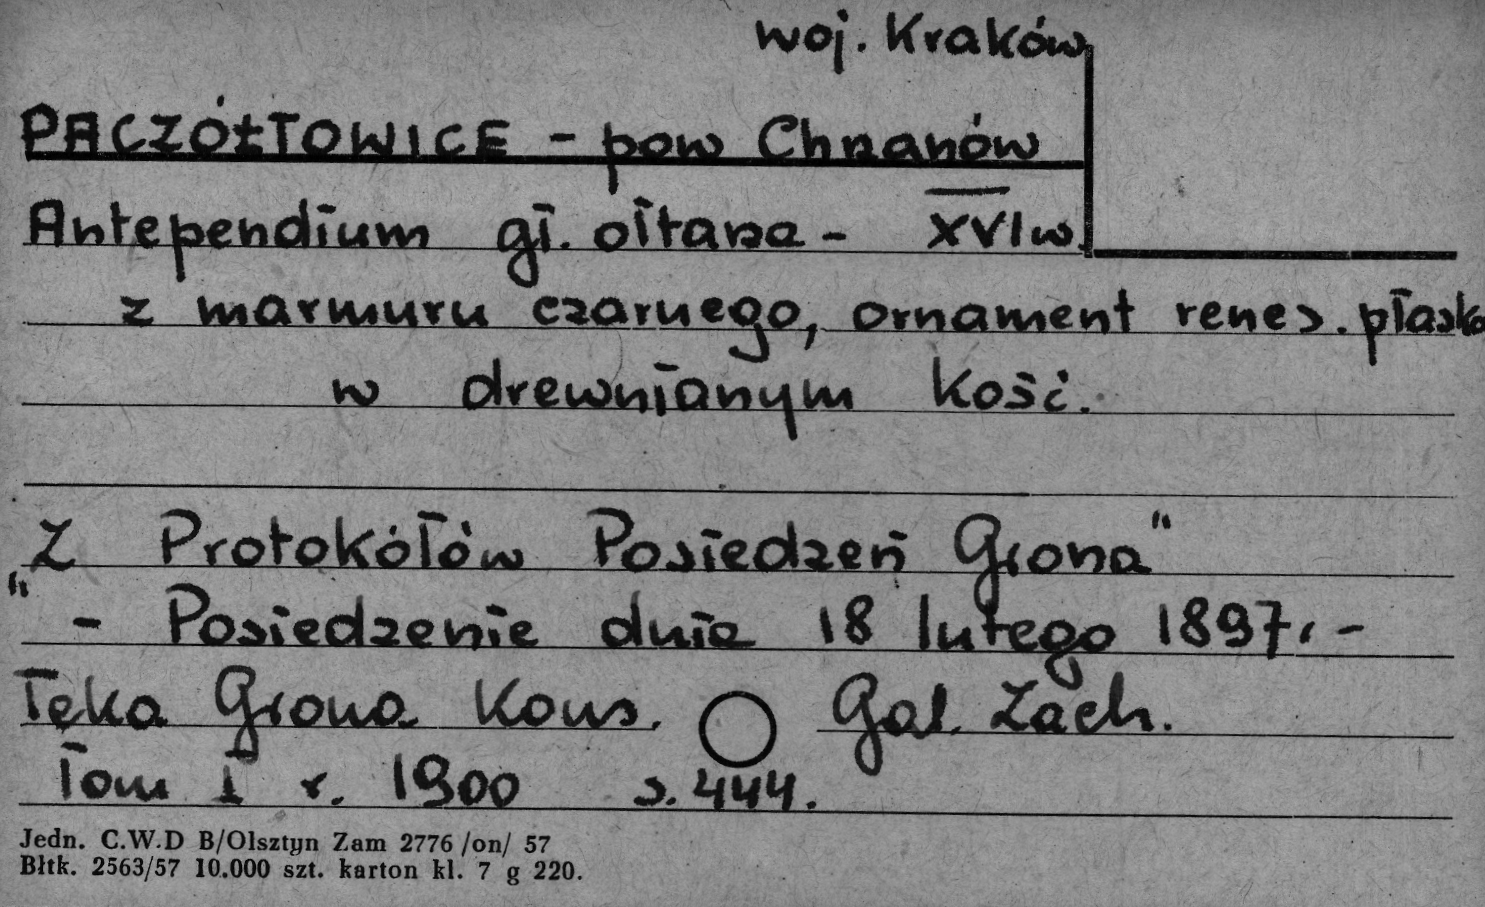 woj. Kraków
PACZÓŁTOWICE - pow Chrzanów
Antependium gł. ołtarza - XVI w.
z marmuru czarnego, ornament renes. płasko
w drewnianym kość.
Z Protokółów Posiedzeń Grona"
" - Posiedzenie dnia 18 lutego 1897. -
Teka Grona Kons. Gal. Zach.
Tom I r. 1900 s. 444.
Jedn. C.W.D B/Olsztyn Zam 2776 /on/ 57
Błtk. 2563/57 10.000 szt. karton kl. 7 g 220.